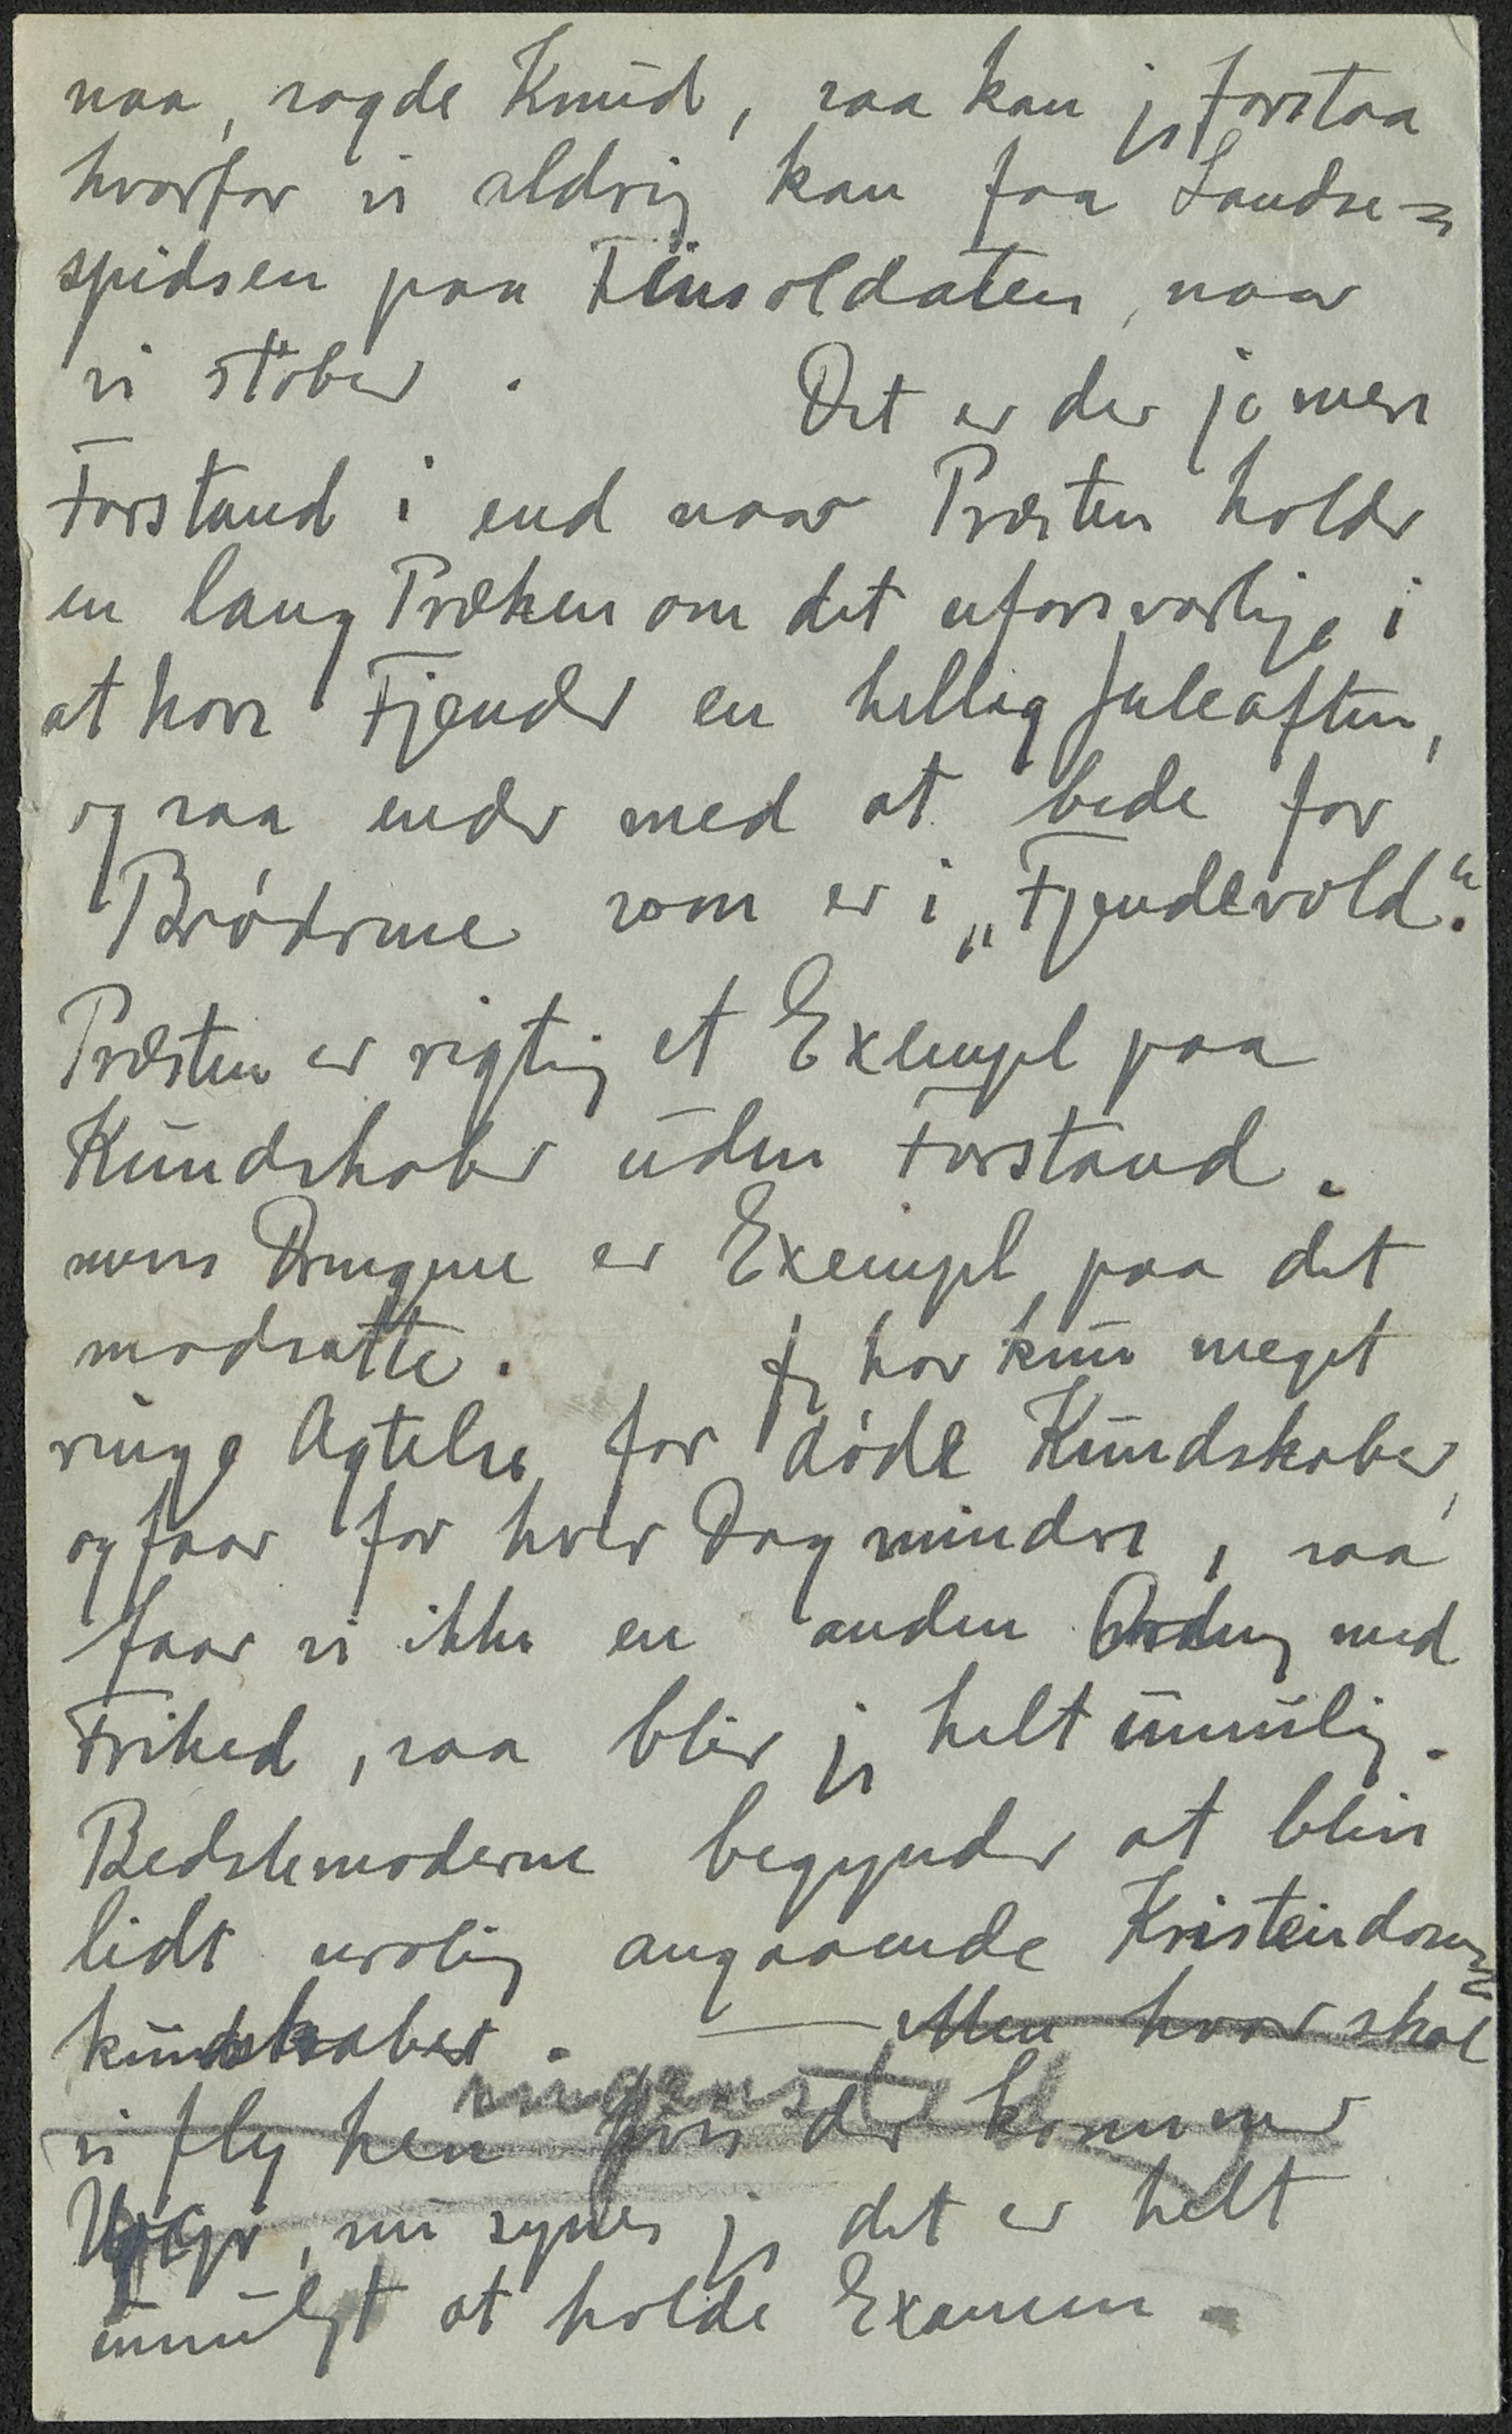 naa, sagde Knud, saa kan jeg forstaa
hvorfor vi aldrig kan faa Landse=
spidsen paa Tinsoldaten, naar
vi støber. Det er der jo mere
Forstand i end naar Præsten holder
en lang Præken om det uforsvarlige i
at have Fjender en hellig Juleaften,
og saa ender med at bede for
Brødrene som er i „Fjendevold“.
Præsten er rigtig et Exempel paa
Kundskaber uden Forstand.
mens Drengene er Exempel paa det
modsatte. Jeg har kun meget
ringe Agtelse for døde Kundskaber,
og faar for hver Dag mindre, saa
faar vi ikke en anden Ordning med
Frihed, saa bliver jeg helt umulig.
Bedstemoderne begynder at blive
lidt urolig angaaende Kristendoms=
kundskaber. — Men hvor skal
vi fly hen hvis der kommer
, nu synes jeg det er helt
umuligt at holde Examen.